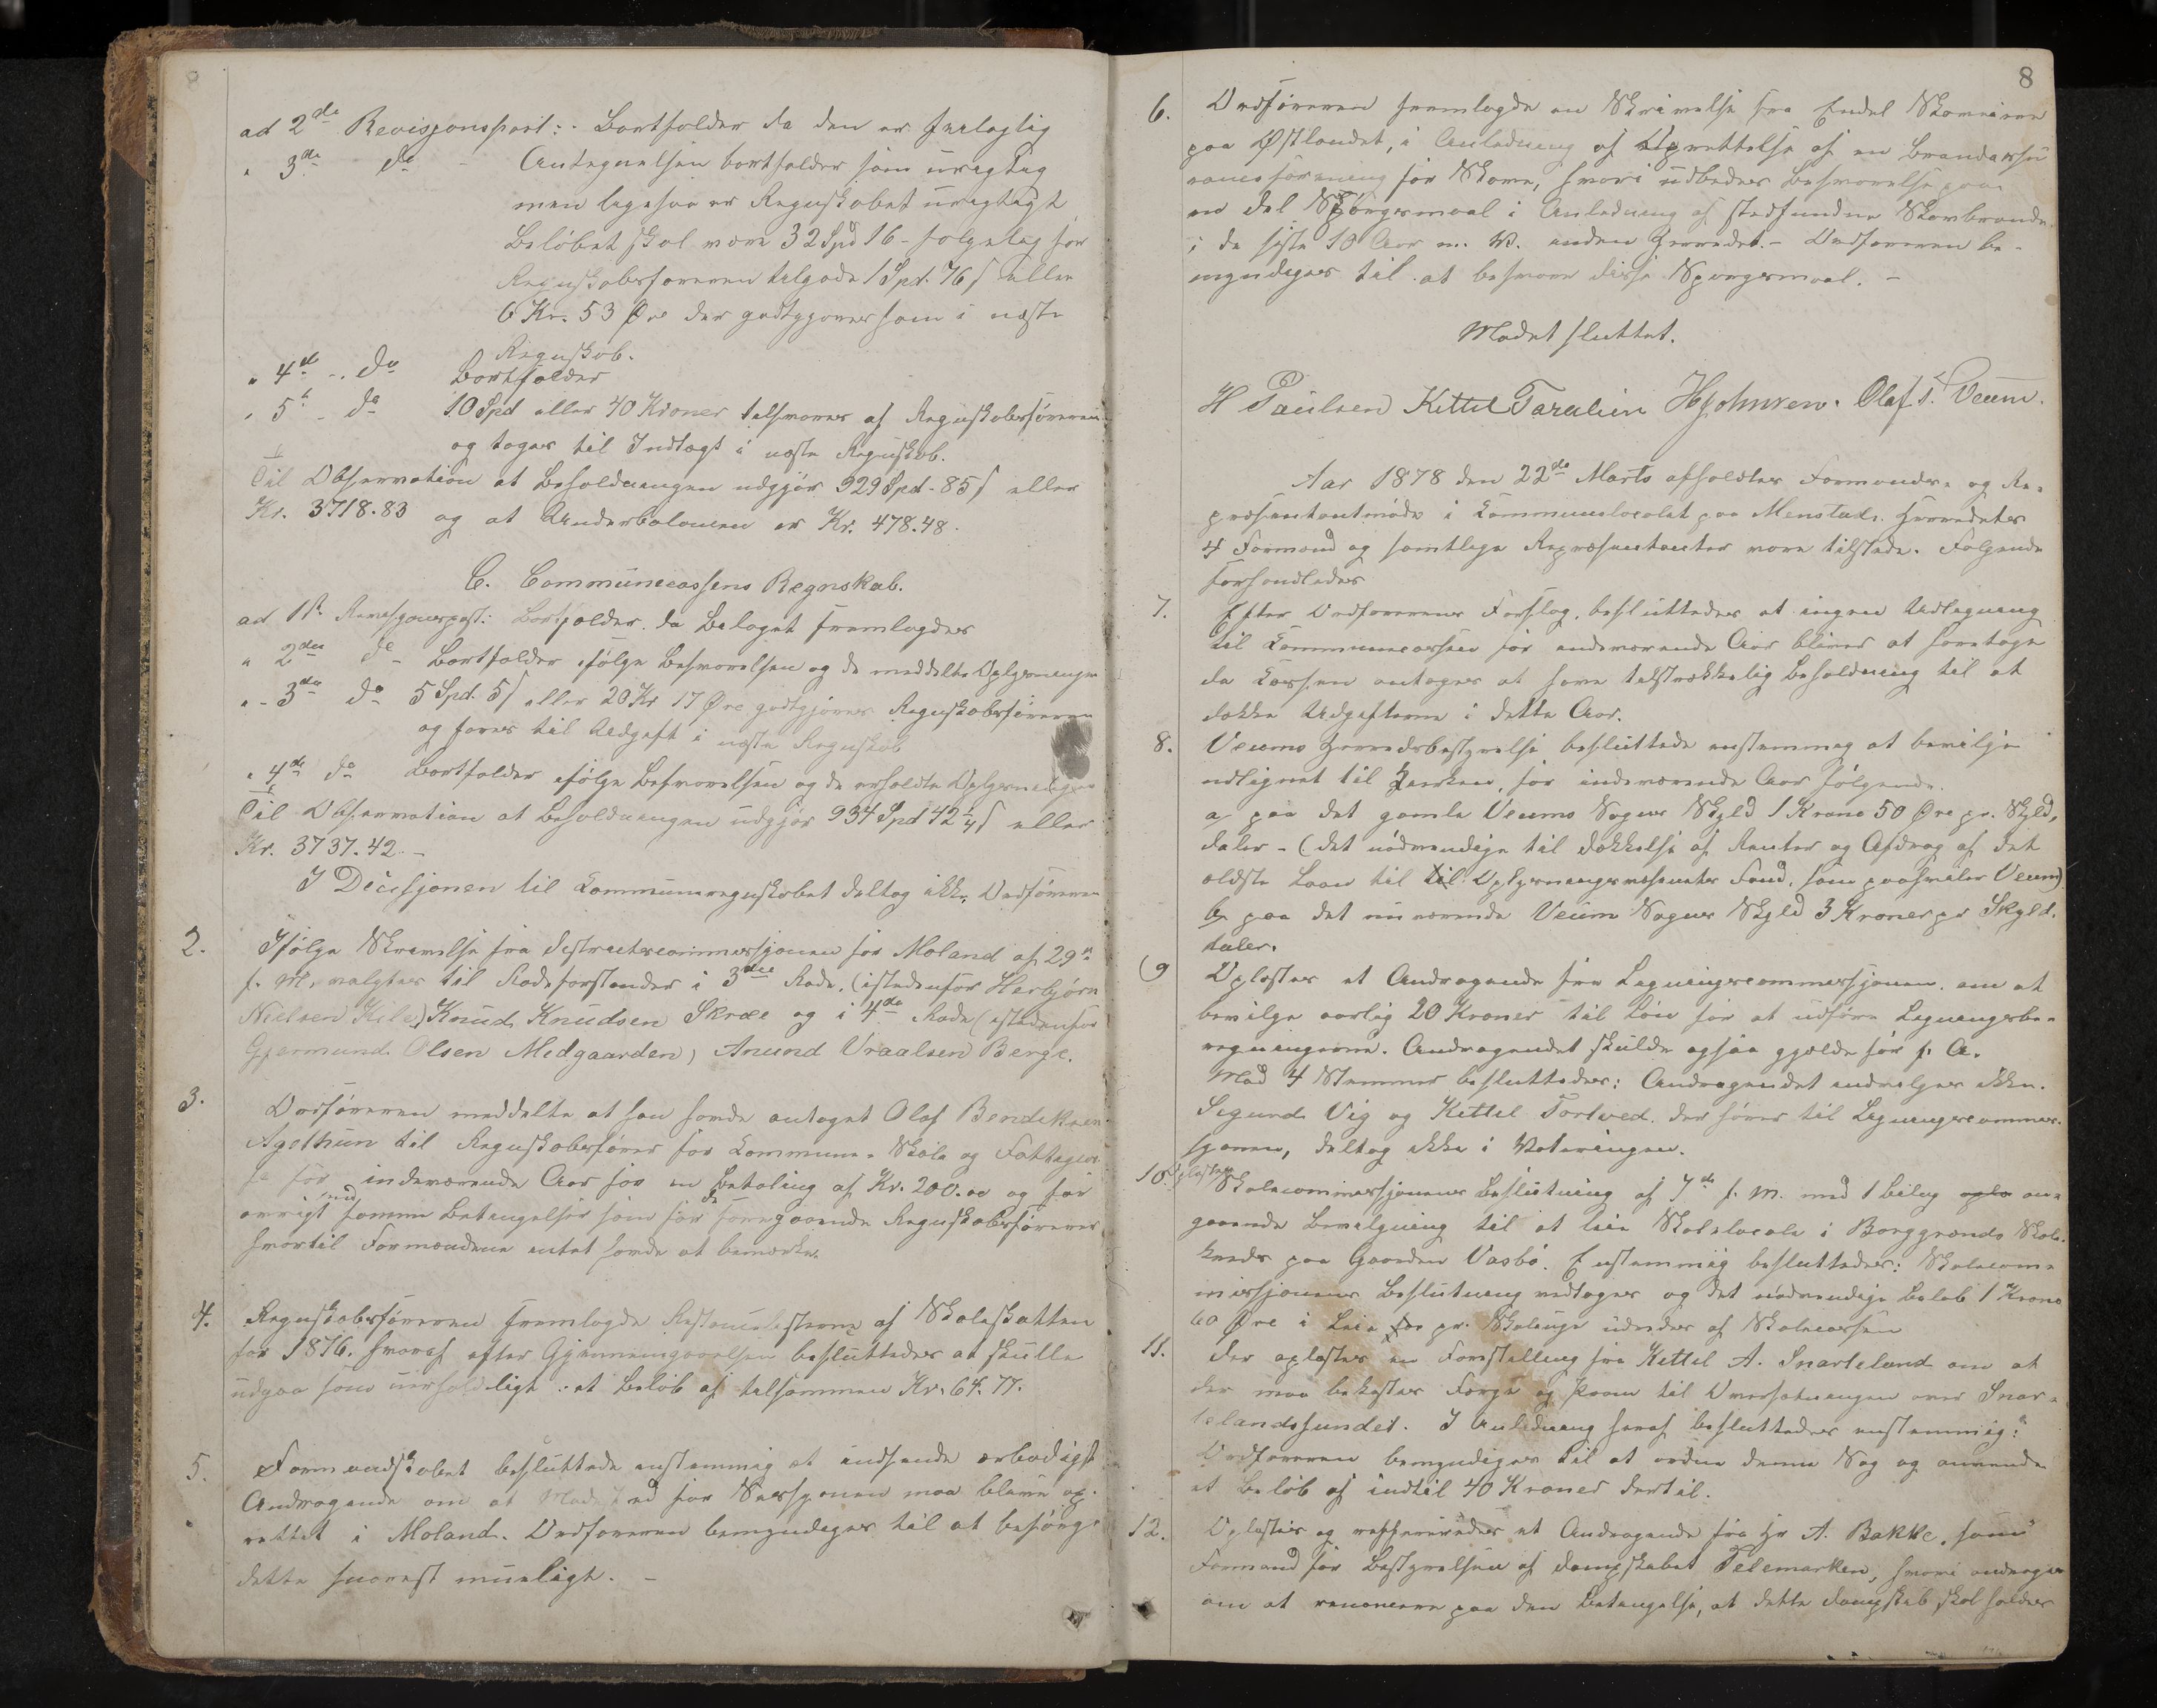 ad 2de Revisjonspost: Bortfalder da den er feilagtig
" 3de do - Antegnelsen bortfalder som urigtig
men ligesaa er Regnskabet urigtigt
Beløbet skal være 32 Spd 16 - følgelig faar
Regnskabsføreren tilgode 1 Spd. 76 s eller
6 Kr. 53 Øre der godtgjøres ham i næste
Regnskab.
" 4de - do Bortfalder
" 5t - do 10 Spd eller 40 Kroner tilsvares af Regnskabsføreren
og tages til Indtægt i næste Regnskab.
Til Observation at Beholdningen udgjør 929 Spd - 85 s eller
Kr. 3718.83 og at Underbalancen er Kr. 478.48.
C. Communecassens Regnskab.
ad 1st Revisjonspost: Bortfalder da Belaget fremlagdes
" 2den do Bortfalder ifølge Besvarelsen og de meddelte Oplysninger
" - 3die do 5 Spd. 5 s eller 20 Kr 17 Øre godtgjøres Regnskabsføreren
og føres til Udgift i næste Regnskab
" 4de do Bortfalder ifølge Besvarelsen og de erholdte Oplysninger
Til Observation at Beholdningen udgjør 934 Spd 42 s eller
Kr. 3737.42. -
I Decisjonen til Kommuneregnskabet deltog ikke Ordføreren
2. Ifølge Skrivelse fra Districtscommissjonen for Moland af 29de
f. M. valgtes til Rodeforstander i 3die Rode, (istedenfor Herbjørn
Nielsen Kile) Knud Knudsen Skræe og i 4de Rode (istedenfor
Gjermund Olsen Midgaarden) Anund Vraalsen Berge.
3. Ordføreren meddelte at han havde antaget Olaf Bendiksen
Agethun til Regnskabsfører for Kommune- Skole og Fattigcas-
se for indeværende Aar for en Betaling af Kr. 200.00 og for
øvrigt med samme Betingelser som for de foregaaende Regnskabsførere
hvortil Formændene intet havde at bemærke.
4. Regnskabsføreren fremlagde Restancelisterne af Skoleskatten
for 1876. hvoraf efter Gjennemgaaelsen besluttedes at skulle
udgaa som uerholdeligt et Beløb af tilsammen Kr. 64.77.
5. Formandskabet besluttede enstemmig at indsende ærbødigst
Andragende om at Mødested for Sessjonen maa blive op-
rettet i Moland. Ordføreren bemyndiges til at besørge
dette snarest mueligt. -
8
6. Ordføreren fremlagde en Skrivelse fra Endel Skoveiere
paa Østlandet, i Anledning af Oprettelse af en Brandassu
ranceforening for Skove, hvori udbedes Besvarelse paa
en del Spørgsmaal i Anledning af stedfundne Skovbrande
i de sidste 10 Aar m. V. inden Herredet. - Ordføreren be-
myndiges til at besvare disse Spørgsmaal. -
Mødet sluttet.
H Paulsen Kittil Taraldlien HJohnsen. Olaf S. Veum.
Aar 1878 den 22de Marts afholdtes Formands- og Re-
præsentantmøde i Kommunelocalet paa Menstad. Herredets
4 Formænd og samtlige Repræsentanter vare tilstede. Følgende
forhandledes
7. Efter Ordførerens Forslag, besluttedes at ingen Udligning
til Kommunecassen for indeværende Aar bliver at foretage
da Kassen antages at have tilstrækkelig Beholdning til at
dække Udgifterne i dette Aar.
8. Veums Herredsbestyrelse besluttede enstemmig at bevilge
udlignet til Kirken, for indeværende Aar følgende.
a, paa det gamle Veums Sogns Skyld 1 Krone 50 Øre pr. Skyld,
daler - (det nødvendige til Dækkelse af Renter og Afdrag af det
ældste Laan til til Oplysningsvæsenets Fond, som paahviler Veum)
b, paa det nuværende Veum Sogns Skyld 3 Kroner pr Skyld.
daler.
(9 Oplæstes et Andragende fra Ligningscommissjonen, om at
bevilge aarlig 20 Kroner til Løn for at udføre Ligningsbe-
regningerne. Andragendet skulde ogsaa gjælde for f. A.
Med 4 Stemmer besluttedes: Andragendet indvilges ikke.
Sigund Vig og Kittil Tortved der hører til Ligningscommis-
sjonen, deltog ikke i Voteringen.
10. Oplæstes Skolecommissjonens Beslutning af 7de f. M. med 1 Bilag oplæ an-
gaaende Bevilgning til at leie Skolelocale i Borggrends Skole-
kreds paa Gaarden Vasbø. Enstemmig besluttedes: Skolecom-
missjonens Beslutning vedtages og det nødvendige Beløb 1 Krone
60 Øre i Leie for pr. Skoleuge udredes af Skolecassen
11. Der oplæstes en Forestilling fra Kittil A. Snarteland om at
der maa bekostes Færge og Pram til Oversætningen over Snar-
telandssundet. I Anledning heraf besluttedes enstemmig:
Ordføreren bemyndiges til at ordne denne Sag og anvende
et Beløb af indtil 40 Kroner dertil.
12. Oplæstes og reffereredes et Andragende fra Hr A. Bakke, som
Formand for Bestyrelsen af Dampskibet Telemarken, hvori andrages
om at renoncere paa den Betingelse, at dette Dampskib skal holdes